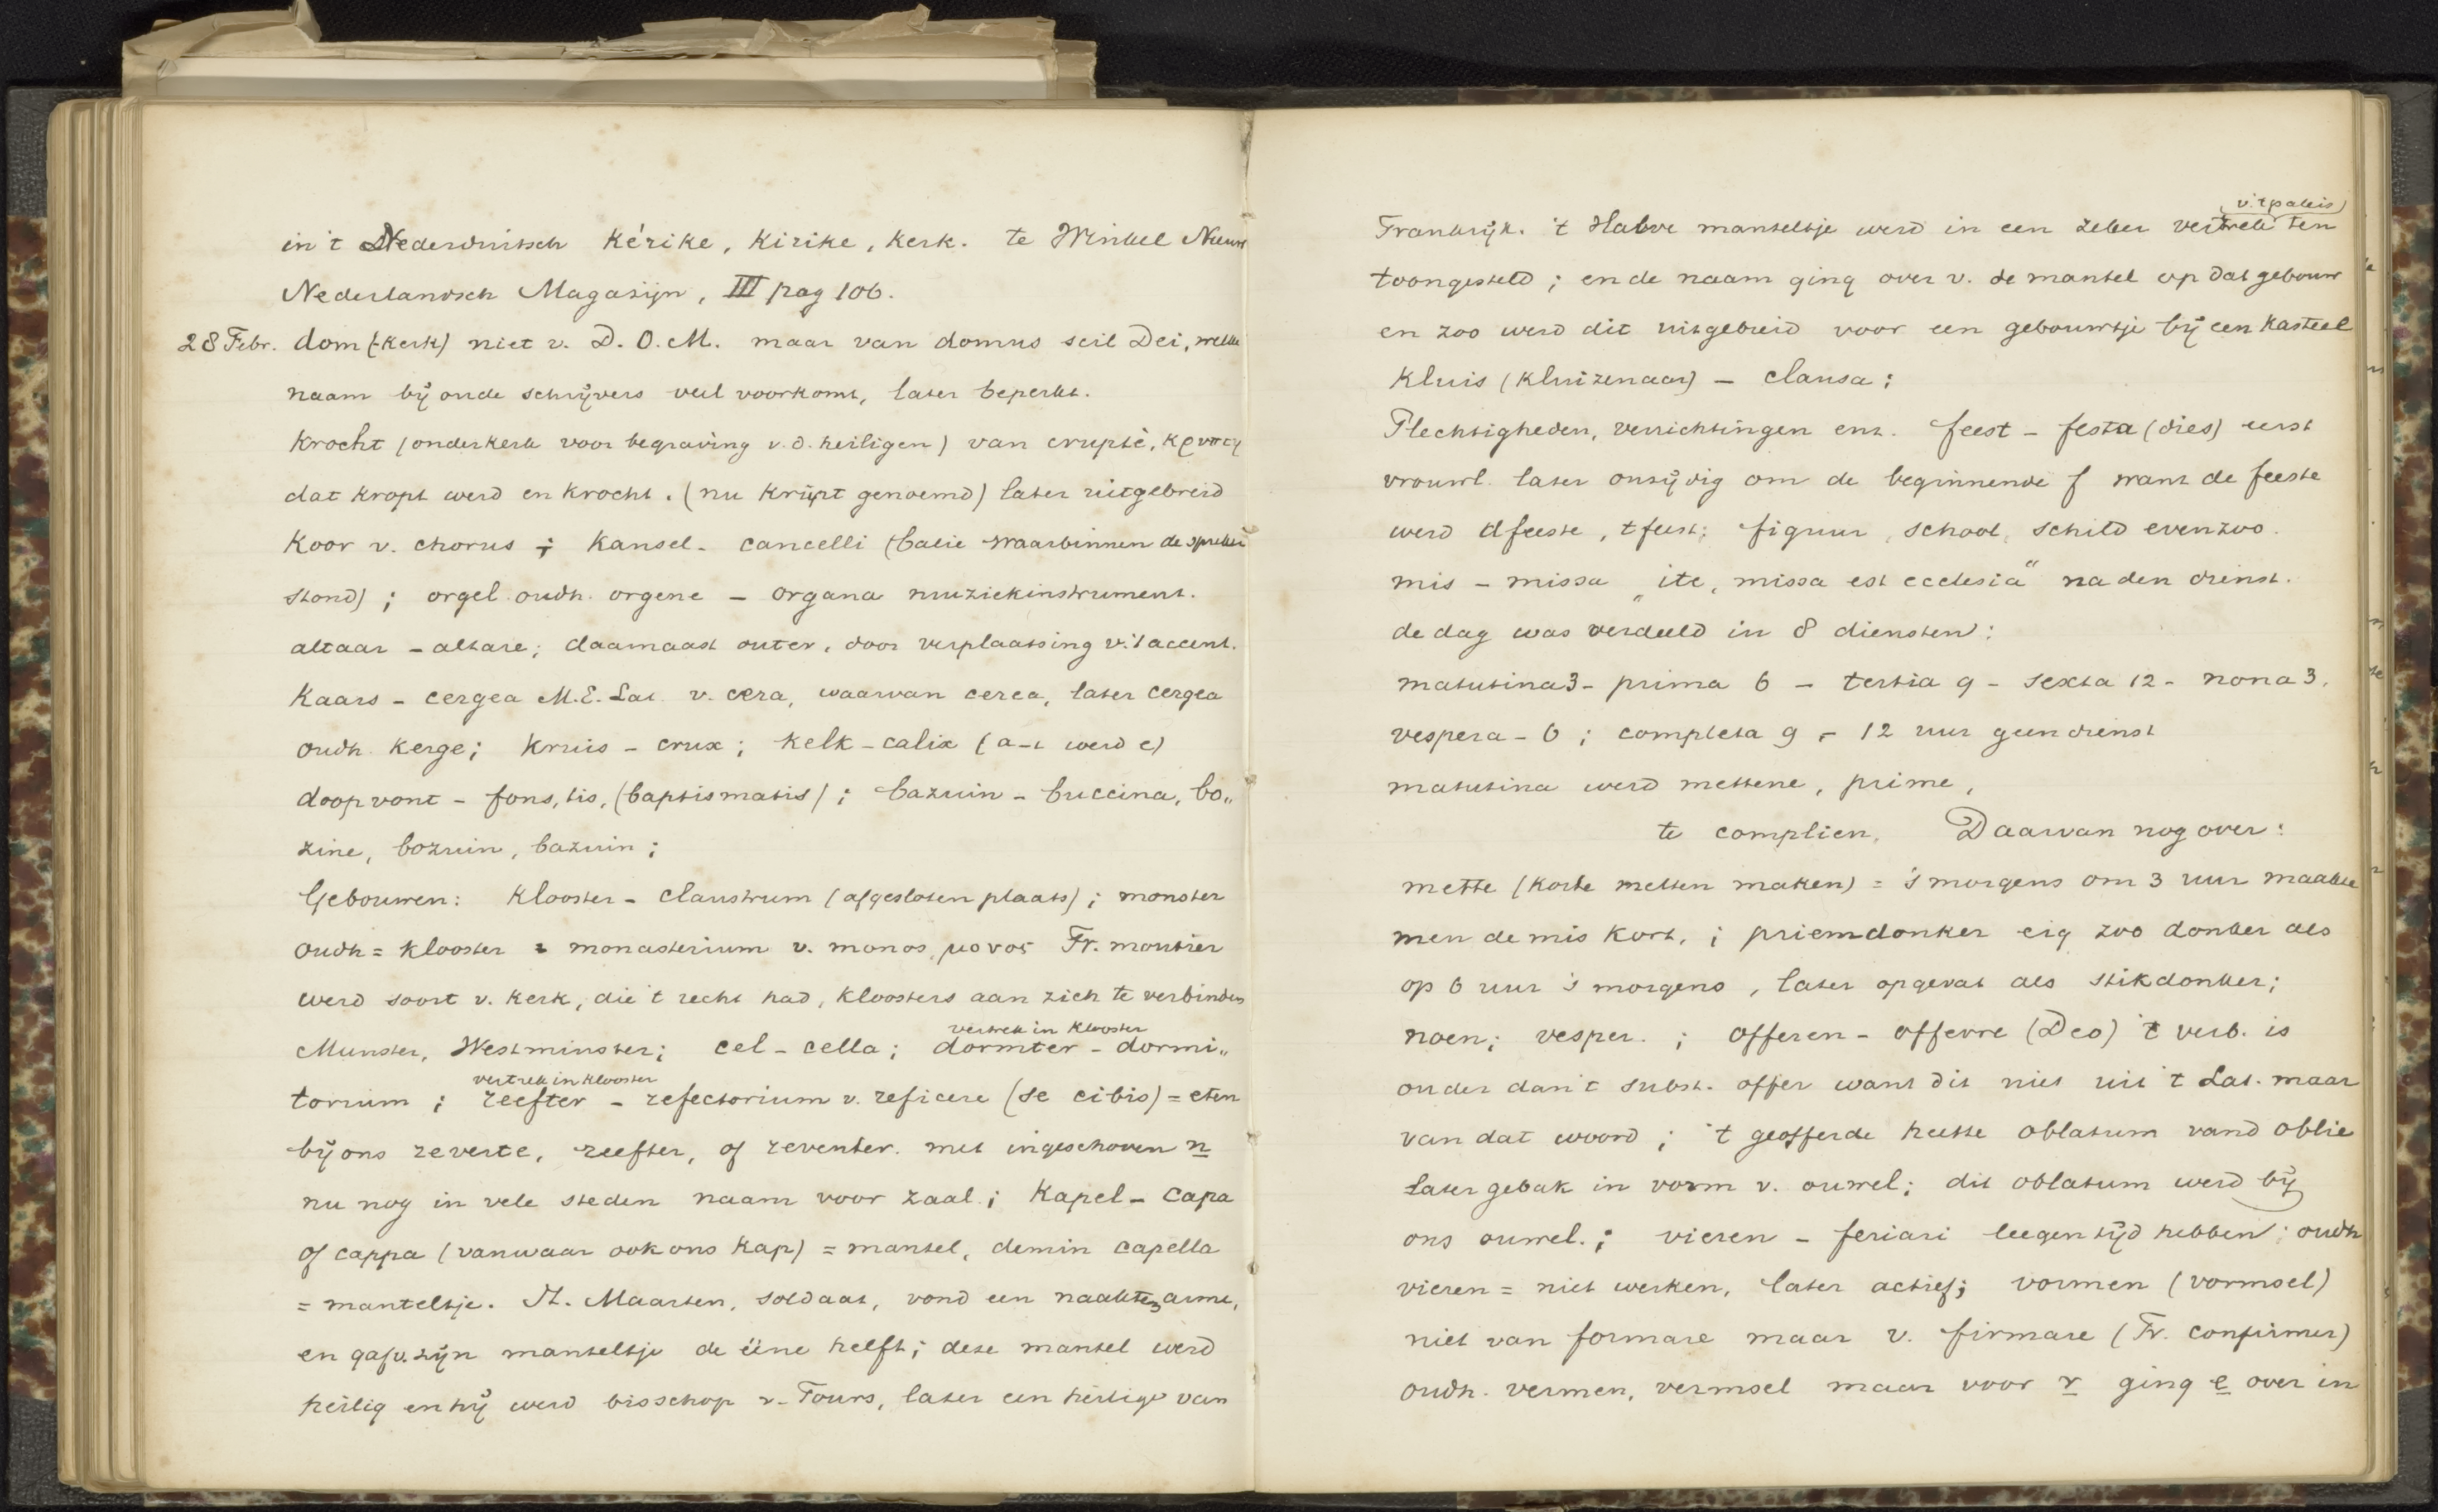 in 't Nederduitsch Kérike, Kirike, Kerk. te Winkel Nieuw
Nederlandsch Magazijn, III pag 106.
28 Febr. dom (-kerk) niet v. D. O. M. maar van domus scil Dei, welke
naam bij oude schrijvers veel voorkomt, later beperkt.
Krocht (onderkerk voor begraving v. d. heiligen) van crupte,
dat kropt werd en krocht. (nu krijpt genoemd) later uitgebreid
Koor v. chorus ; Kansel - cancelli (balie waarbinnen de spreker
stond) ; orgel oudh. orgene - organa muziekinstrument.
altaar - altare; daarnaast outer, door verplaatsing v. 't accent.
Kaars - cergea M.E. Lat. v. cera, waarvan cerea, later cergea
oudh. kerge; kruis - crux ; kelk - calix (a-i werd e)
doopvont - fons, tis, (baptismatis) ; bazuin - buccina, bo„
zine, bozuin, bazuin ;
Gebouwen: Klooster - claustrum (afgesloten plaats) ; monster
oudh = klooster = monasterium v. monos, μονος Fr. moutier
werd soort v. kerk, die 't recht had, kloosters aan zich te verbinden
vertrek in klooster
Munster, Westminster; cel - cella ; dormter - dormi„
vertrek in klooster
torium ; reefter - refectorium v. reficere (se cibis) = eten
bij ons reverte, reefter, of reventer. met ingeschoven n
nu nog in vele steden naam voor zaal ; Kapel - capa
of cappa (vanwaar ook ons kap) = mantel, demin capella
= manteltje. St. Maarten, soldaat, vond een naakten arme,
en gaf v. zijn manteltje de ééne helft ; deze mantel werd
heilig en hij werd bisschop v. Tours, later een heilige van
v. 't paleis)
Frankrijk. 't Halve manteltje werd in een zeker vertrek ten
toongesteld ; en de naam ging over v. de mantel op dat gebouw
en zoo werd dit uitgebreid voor een gebouwtje bij een kasteel
Kluis (kluizenaar) - clausa ;
Plechtigheden, verrichtingen enz. feest - festa (dies) eerst
vrouwl. later onzijdig om de beginnende f want de feeste
werd dfeeste, tfeest; figuur, school, schild evenzoo.
mis - missa „ite, missa est ecclesia" na den dienst.
de dag was verdeeld in 8 diensten:
matutina 3 - prima 6 - tertia 9 - sexta 12 - nona 3.
vespera - 6 ; completa 9 - 12 uur geen dienst
matutina werd mettene, prime,
te complien. Daarvan nog over:
mette (korte metten maken) = 's morgens om 3 uur maakte
men de mis kort, ; priemdonker eig zoo donker als
op 6 uur 's morgens, later opgevat als stikdonker;
noen; vesper. ; offeren - offerre (Deo) 't verb. is
ouder dan 't subst. offer want dit niet uit 't Lat. maar
van dat woord ; 't geofferde heette oblatum vand oblie
later gebak in vorm v. ouwel; dit oblatum werd bij
ons ouwel. ; vieren - feriari leegen tijd hebben; oudh
vieren = niet werken, later actief; vormen (vormsel)
niet van formare maar v. firmare (Fr. confirmer)
oudh. vermen, vermsel maar voor r ging e over in